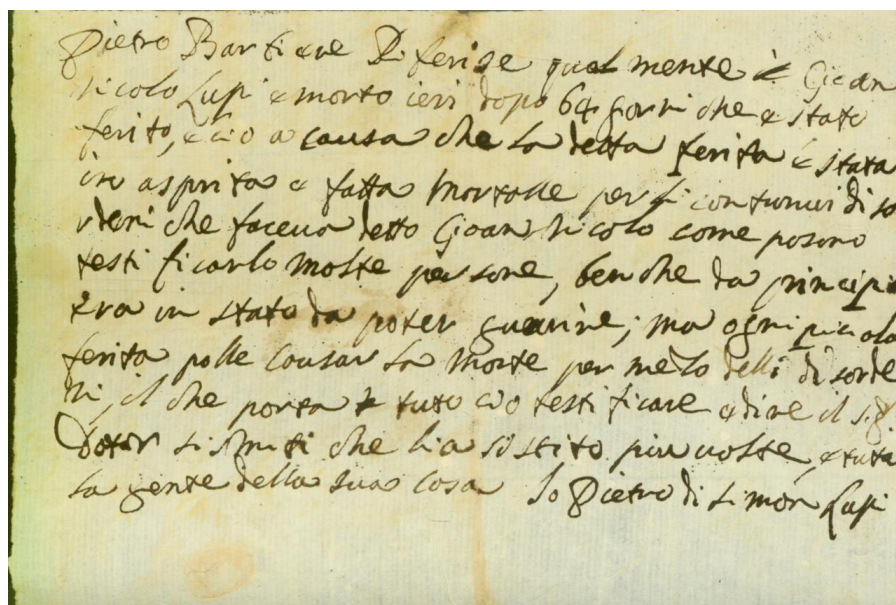 Pietro Bartiere Riferise qualmente è Gioan
Nicolo Lupi e morto ieri dopo 64 gorni che e stato
ferito, e cio a causa che la detta ferita e stata
in asprita e fatta mortalle per li continui diso
rderi che faceva detto Gioan Nicolo come posono
testificarlo molte persone, ben che da principi
era in stato da poter guarire; ma ogni piciola
ferita polle causar la morte per melo delli disorde
ni, il che porra tuto cio testificare e dire il sig
Dotor che lia sistito piu volte, e tuta
la gente della sua casa Io Pietro di Simon Lupi